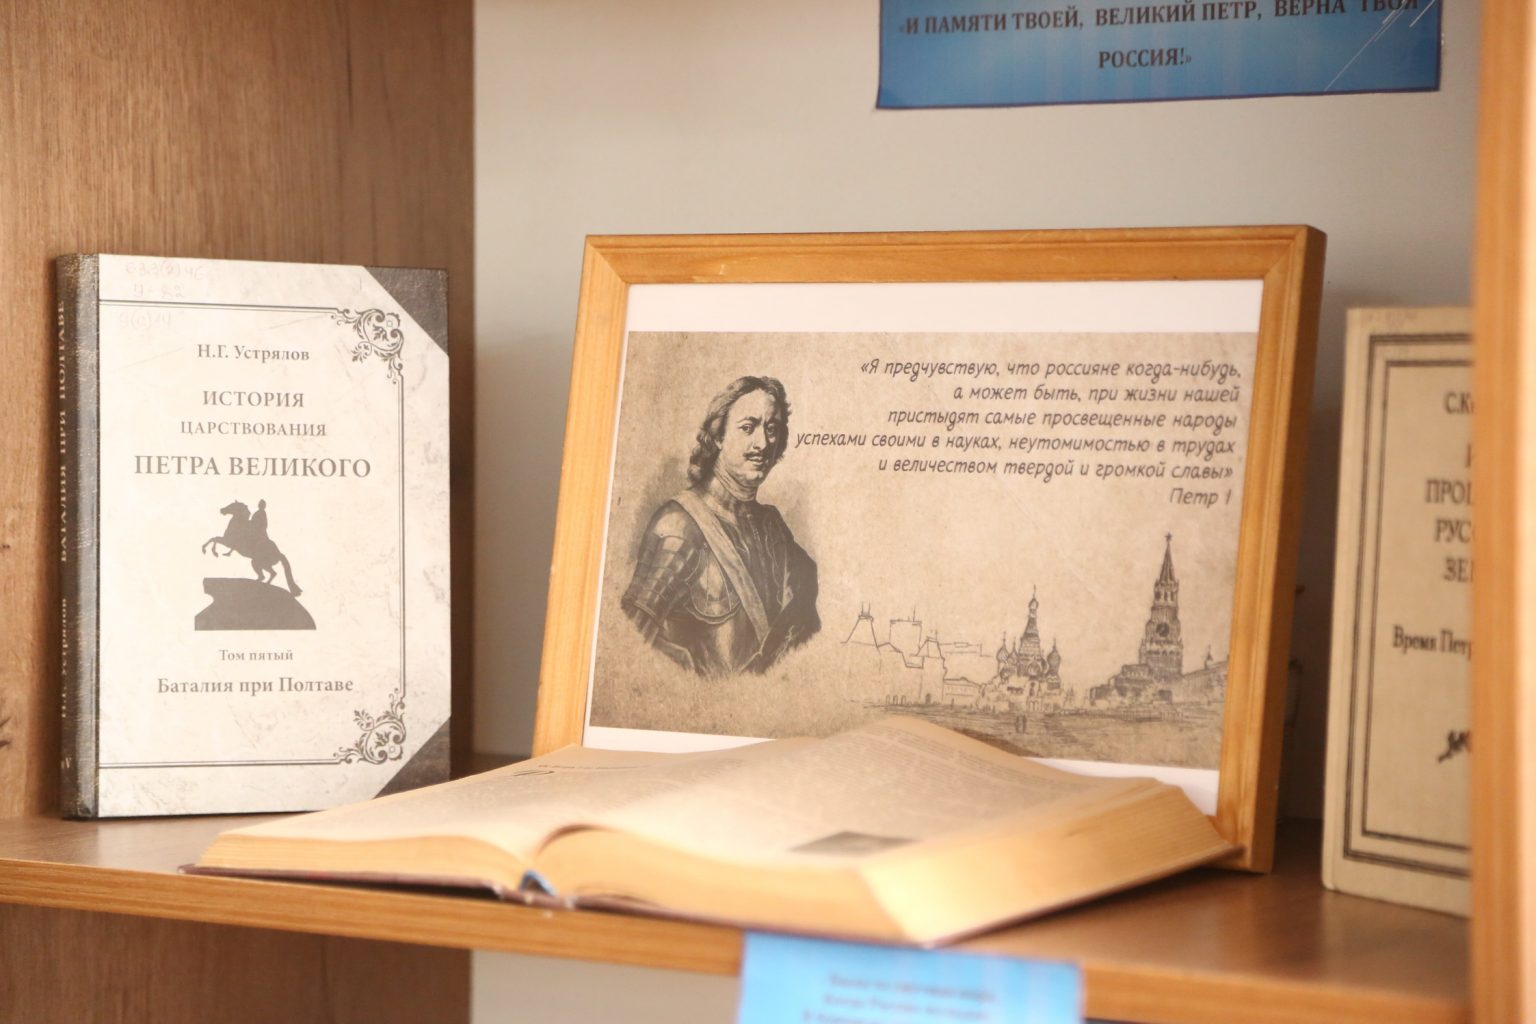 «И ПАМЯТИ ТВОЕЙ, ВЕЛИКИЙ ПЕТР, ВЕРНА ТВОЯ
РОССИЯ!»
Н.Г. Устрялов
ИСТОРИЯ
ЦАРСТВОВАНИЯ
ПЕТРА ВЕЛИКОГО
Том пятый
Баталия при Полтаве
Н.Г. Устрялов БАТАЛИЯ ПРИ ПОЛТАВЕ
V
«Я предчувствую, что россияне когда-нибудь,
а может быть, при жизни нашей
пристыдят самые просвещенные народы
успехами своими в науках, неутомимостью в трудах
и величеством твердой и громкой славы»
Петр I
ПРО
РУС
ЗЕ
Время Пет